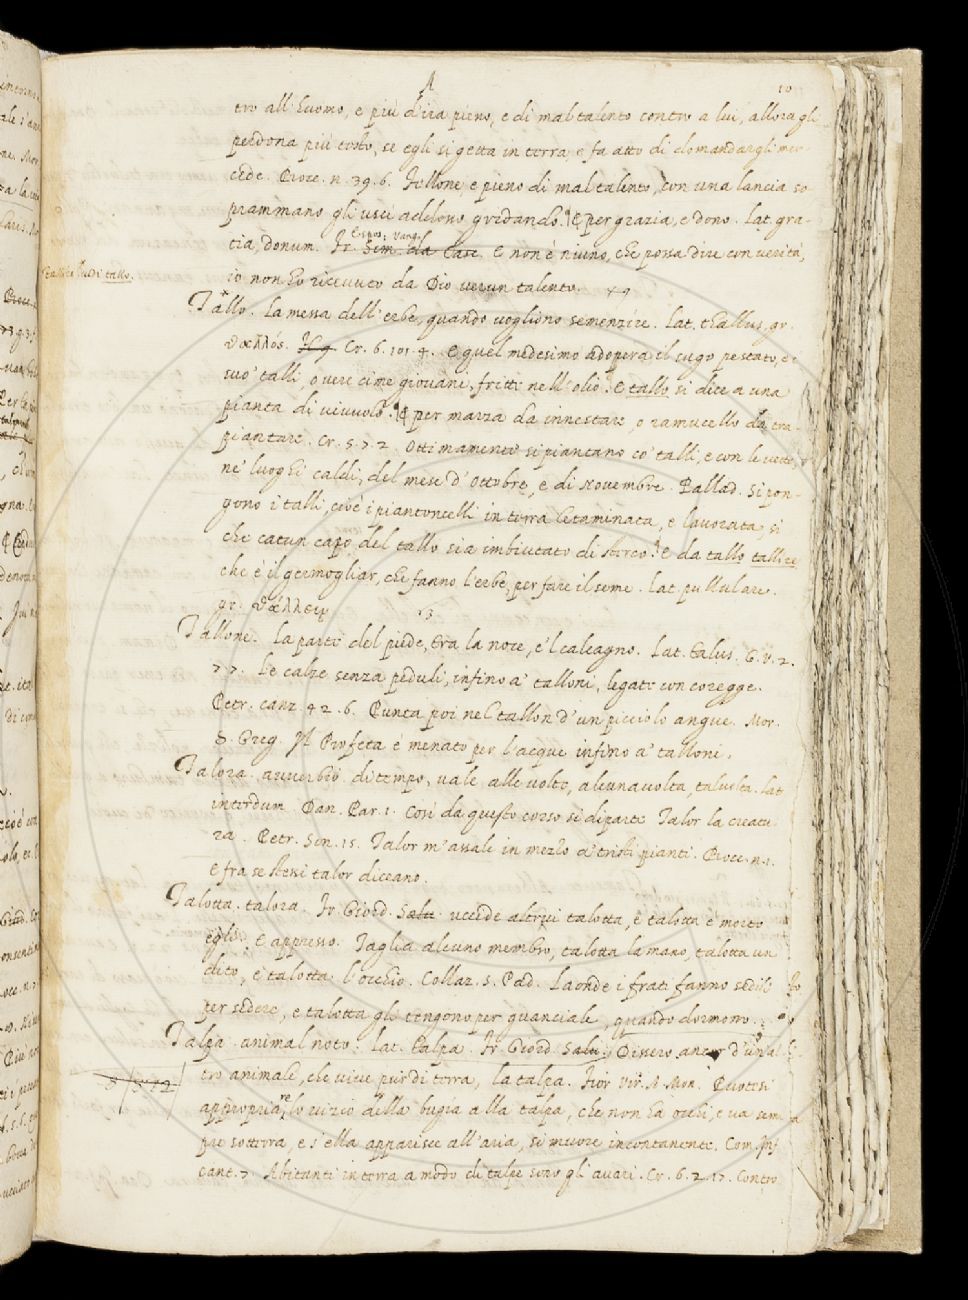 A
10
tro all'huomo, e più d'ira pieno, e di mal talento contro a lui, allora gli
perdona più tosto, se egli si getta in terra, e fa atto di domandargli mer-
cede. Bocc. n. 39. 6. Fellone, e pieno di mal talento, con una lancia so-
prammano gli uscì addosso gridando. E per grazia, e dono. Lat. gra-
Espos. Vang.
tia, donum. Fr. Sim. da Casc. E non è niuno, che possa dire con verità,
io non ho ricevuto da Dio verun talento.
Tallo. La messa dell'erbe, quando vogliono semenzire. Lat. thallus, gr.
θαλλός. Cr. 6. 101. 4. E quel medesimo adopera il sugo pestato, e i
suo' talli, overe cime giovani, fritti nell'olio. E tallo si dice a una
pianta di vivuolo. E per marza da innestare, o ramucello da tra-
piantare. Cr. 5. 7. 2. Ottimamente si piantano co' talli, e con le vette,
ne' luoghi caldi, del mese d'Ottobre, e di Novembre. Pallad. Si pon-
gono i talli, cioè i piantoncelli in terra letaminata, e lavorata, si
che catun capo del tallo sia imbiutato di sterco. E da tallo tallire
che è il germogliar, che fanno l'erbe, per fare il seme. Lat. pullulare.
gr. θάλλειν
Tallone. La parte del piede, tra la noce, e'l calcagno. Lat. talus. G. V. 2.
77. Le calze senza peduli, infino a' talloni, legate con coregge.
Petr. canz. 42. 6. Punta poi nel tallon d'un picciolo angue. Mor.
S. Greg. Il Profeta è menato per l'acque infino a' talloni.
Talora. avverbio di tempo, vale alle volte, alcuna volta, talvolta. Lat.
interdum. Dan. Par. 1. Così da questo corso si diparte Talor la creatu-
ra. Petr. Son. 15. Talor m'assale in mezzo a' tristi pianti. Bocc. n. 1.
e fra se stessi talor diceano.
Talotta. talora. Fr. Giord. Salu. uccide altrui talotta, e talotta è morto
egli. E appresso. Taglia alcuno membro, talotta la mano, talotta un
dito, e talotta l'occhio. Collaz. S. Pad. Laonde i frati fanno sedile
per sedere, e talotta gli tengono per guanciale, quando dormono.
Talpa. animal noto. Lat. talpa. Fr. Giord. Salu. Dissero ancor d'un al-
tro animale, che vive pur di terra, la talpa. Fior. Vir. A. Mon. Puotesi
appropriare lo vizio della bugia alla talpa, che non ha occhi, e va sem-
pre sotterra, e s'ella apparisce all'aria, si muore incontanente. Com. Inf.
cant. 7. Abitanti in terra a modo di talpe sono gli avari. Cr. 6. 2. 17. Contro